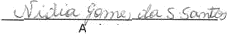 Nidia Gomes da S. Santos
A